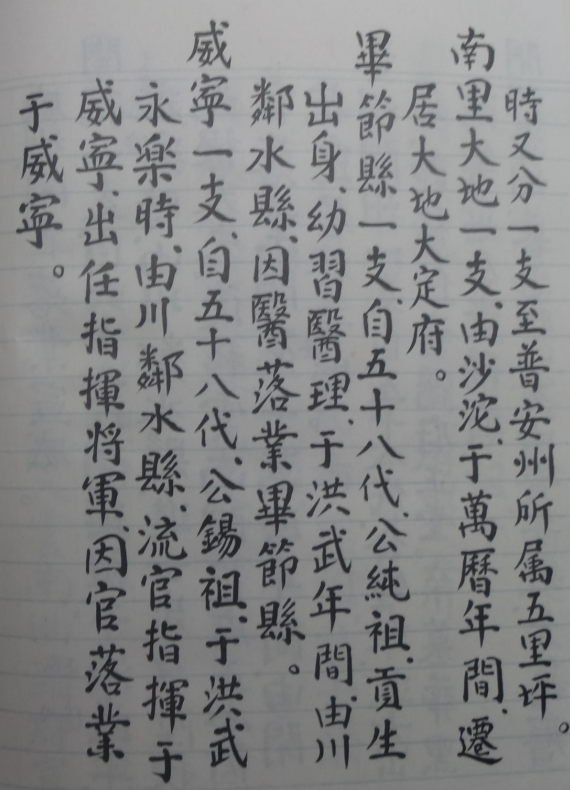 時又分一支至普安州所属五里坪。
南里大地一支、由沙沱、于萬曆年間、遷
居大地大定府。
畢節縣一支、自五十八代、公純祖、貢生
出身、幼習醫理、于洪武年間、由川
鄰水縣、因醫落業畢節縣。
威寧一支、自五十八代、公錫祖、于洪武
永樂時、由川鄰水縣、流官指揮于
威寧、出任指揮將軍、因官落業
于威寧。